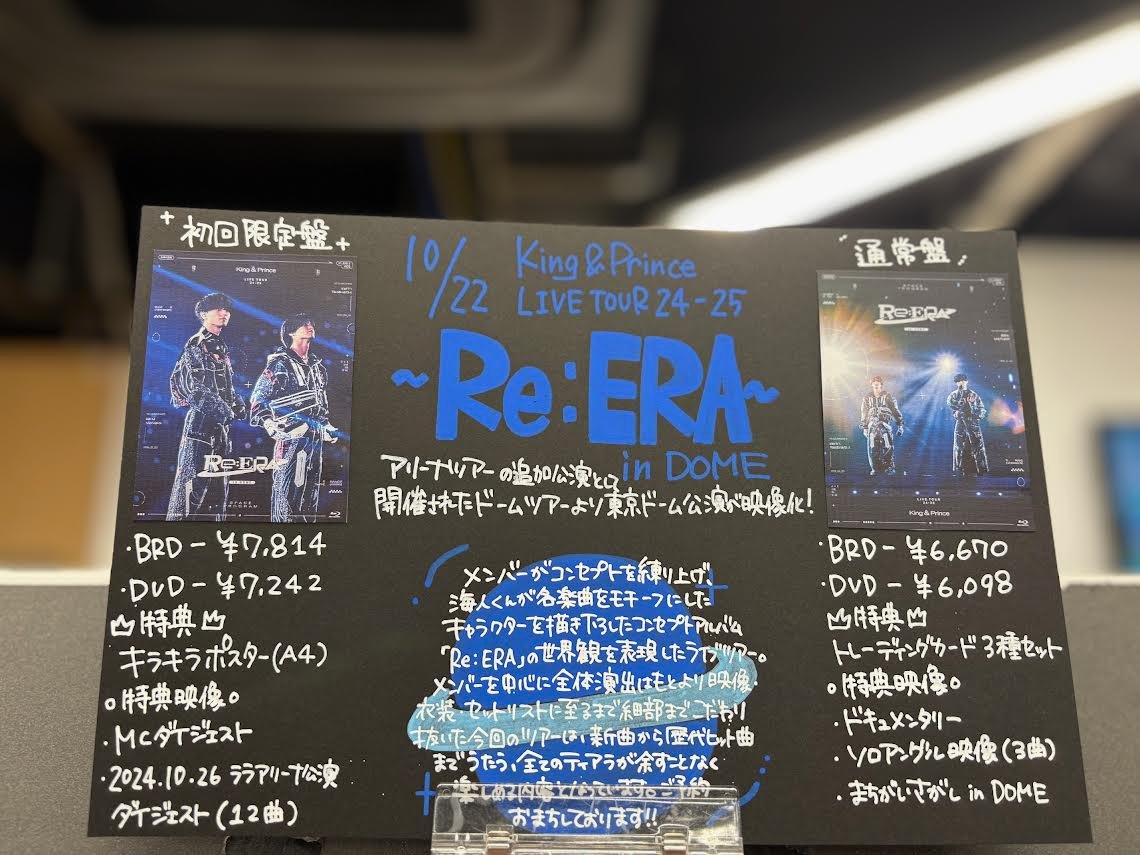 初回限定盤
King & Prince
Re:ERA
IN DOME
・BRD - ¥7,814
・DVD - ¥7,242
特典
キラキラポスター(A4)
○特典映像○
・MCダイジェスト
・2024.10.26 ララアリーナ公演
ダイジェスト(12曲)
10/22
King & Prince
LIVE TOUR 24-25
~Re:ERA~
in DOME
アリーナツアーの追加公演として
開催されたドームツアーより東京ドーム公演が映像化!
メンバーがコンセプトを練り上げ、
海人くんが各楽曲をモチーフにした
キャラクターを描き下ろしたコンセプトアルバム
「Re:ERA」の世界観を表現したライブツアー。
メンバーを中心に全体演出はもとより映像・
衣装・セットリストに至るまで細部までこだわり
抜いた今回のツアーは、新曲から歴代ヒット曲
までうたう、全てのティアラが余すことなく
楽しめる内容となっています。ご予約
おまちしております!!
通常盤
Re:ERA
IN DOME
LIVE TOUR
24-25
King & Prince
・BRD - ¥6,670
・DVD - ¥6,098
特典
トレーディングカード3種セット
○特典映像○
・ドキュメンタリー
・ソロアングル映像(3曲)
・まちがいさがし in DOME